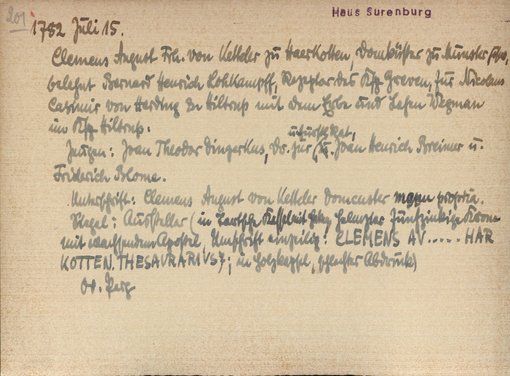 201
Haus Surenburg
1782 Juli 15.
Clemens August Frh. von Ketteler zu Harkotten, Domküster zu Münster
belehnt Bernard Henrich Holtkampff, Rezeptor des Ksp. Greven, für Nicolaus
Casimir von Herding zu Hiltrup mit dem Erbe und Lehen Wegman
im Ksp. Hiltrup.
Zeugen: Joan Theodor Dingerkus, Dr. jur. Joan Henrich Breimer u.
Friderich Blome.
Unterschrift: Clemens August von Ketteler Domcuster mppria.
Siegel: Aussteller (in Kartusche fünfzinkige Krone
mit wachsendem Apostel. Umschrift einzeilig: CLEMENS AV..... HAR
KOTTEN. THESAVRARIVS; in Holzkapsel, schlechter Abdruck)
Or. Perg.